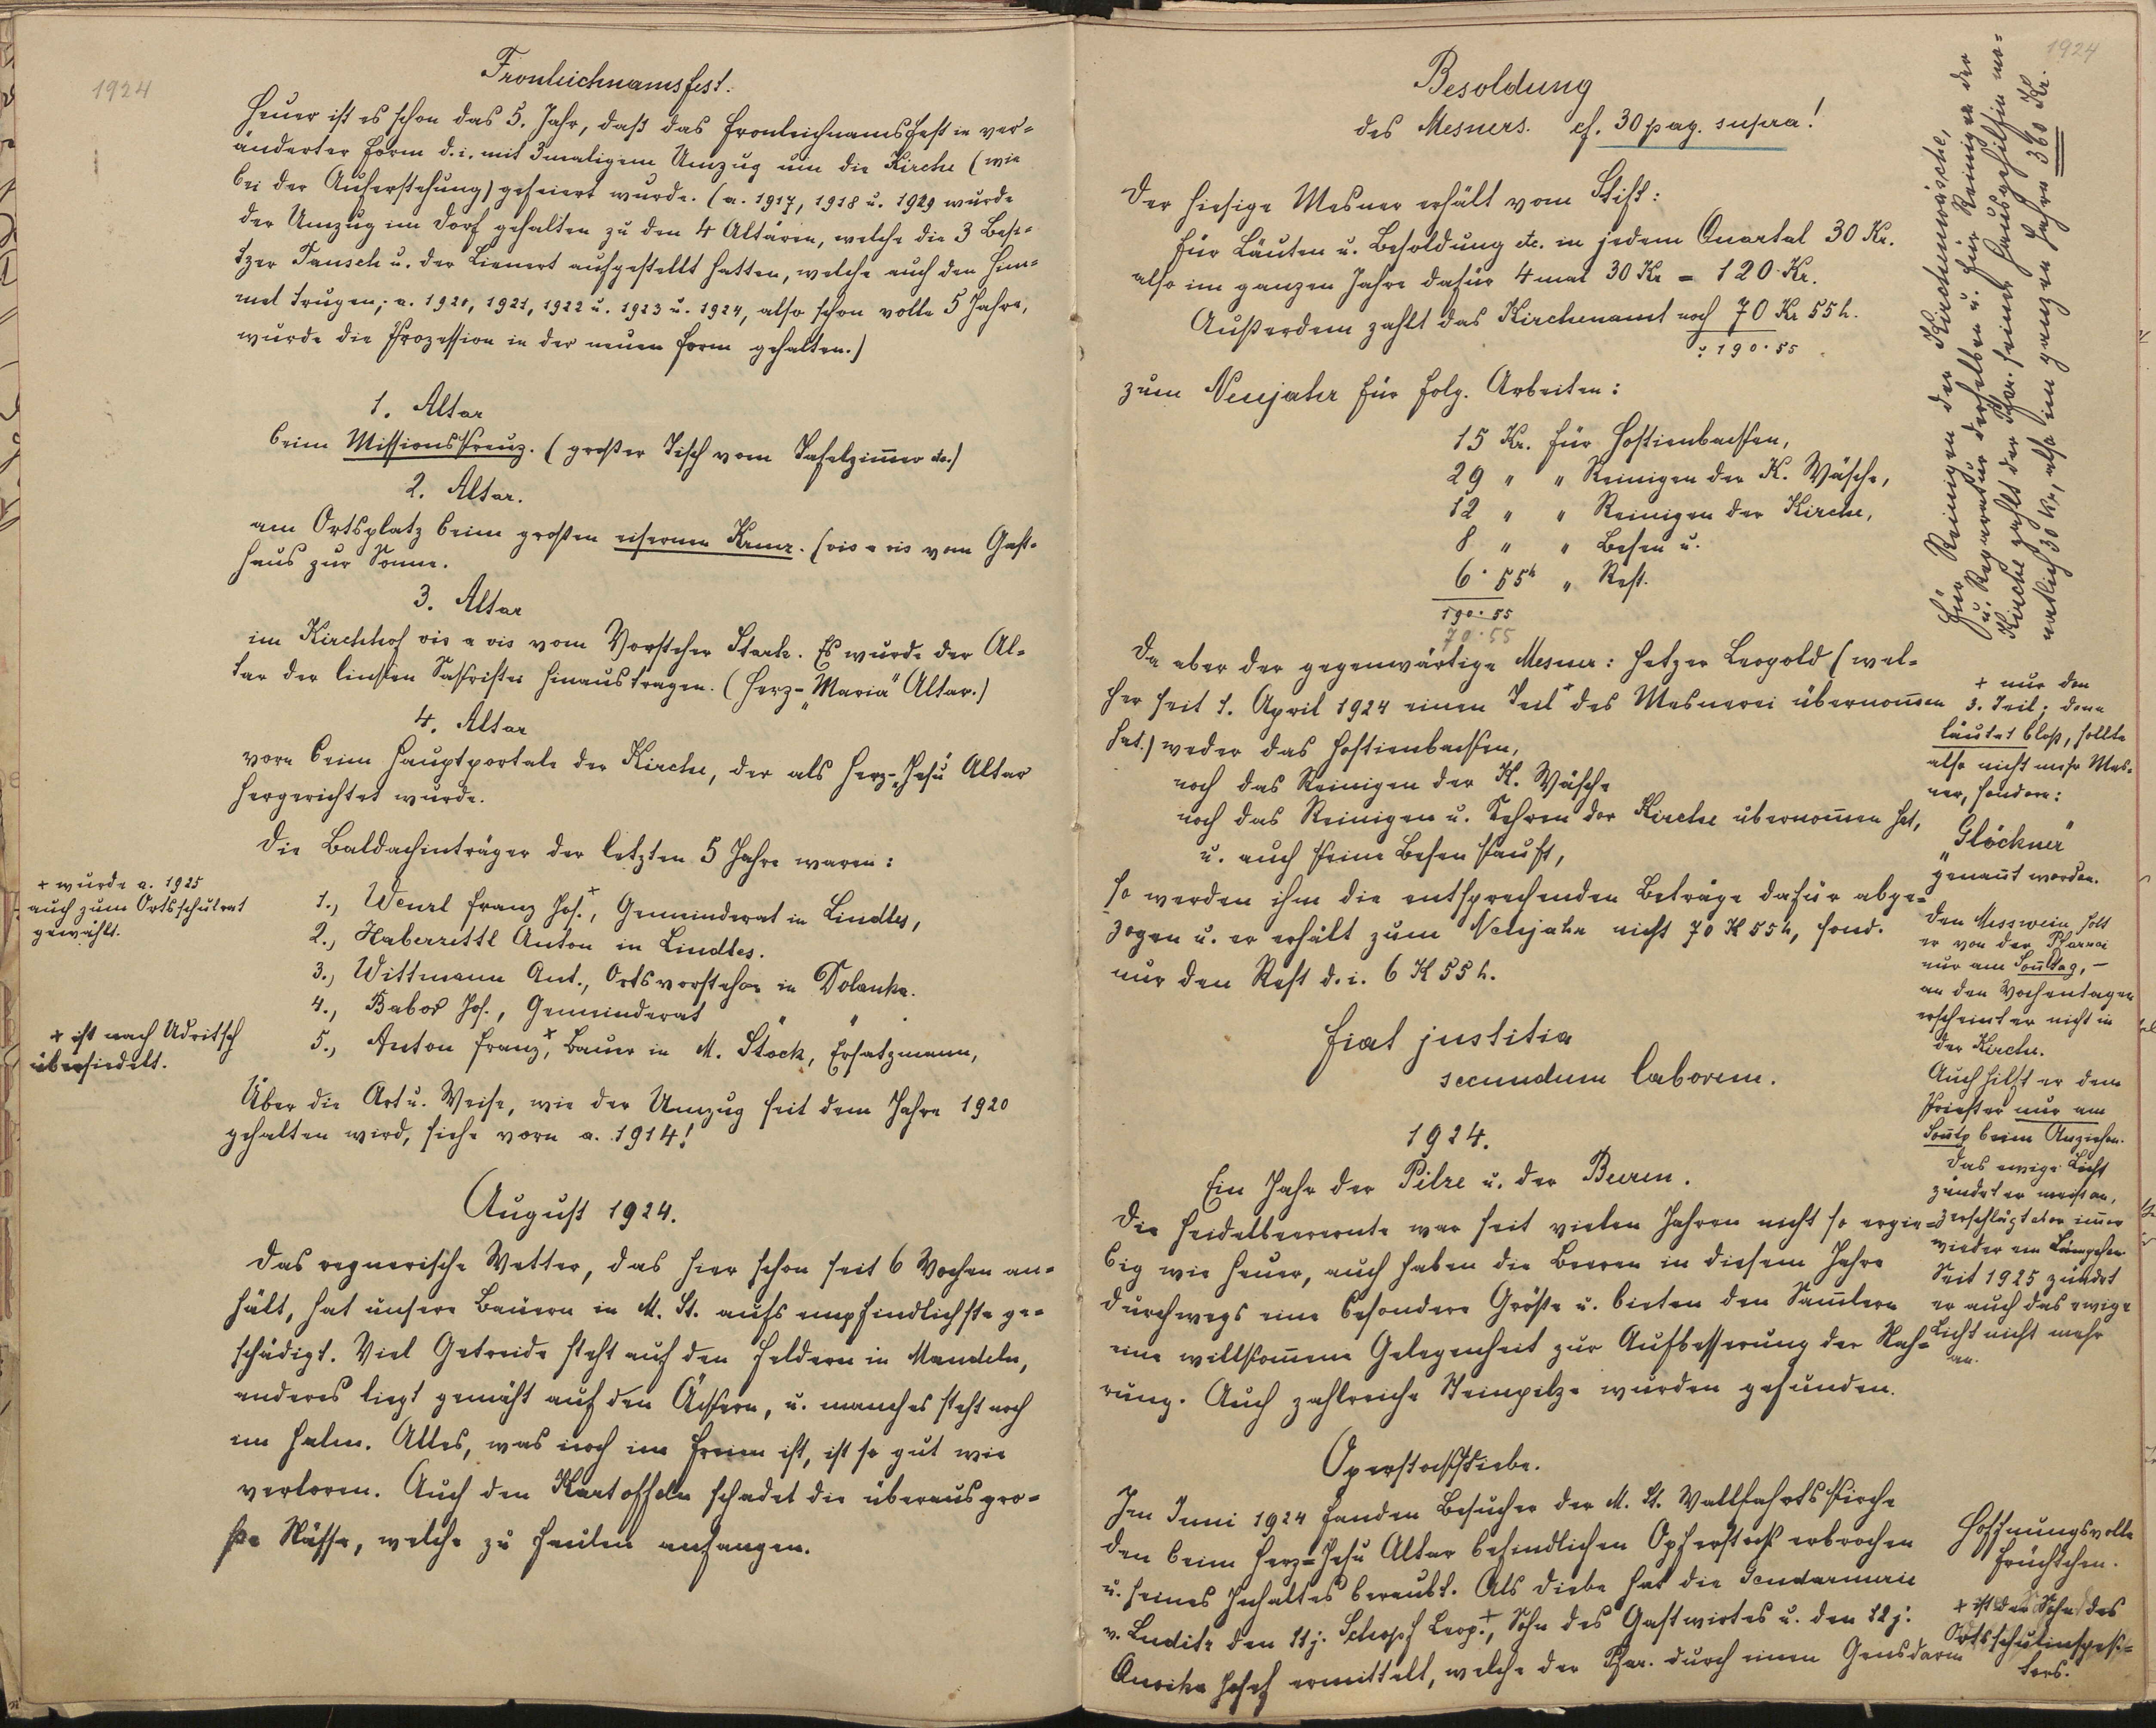 1924
Fronleichnamsfest.
Heuer ist es schon das 5. Jahr, daß das Fronleichnamsfest in ver-
änderter Form d. i. mit 3maligem Umzug um die Kirche (wie
bei der Auferstehung) gefeiert wurde. (a. 1917, 1918 u. 1919 wurde
der Umzug im Dorf gehalten zu den 4 Altären, welche die 3 Besi-
tzer Tausch u. der Lienert aufgestellt hatten, welche auch den Him-
mel trugen; a. 1920, 1921, 1922 u. 1923 u. 1924, also schon volle 5 Jahre,
wurde die Prozession in der neuen Form gehalten.)
1. Altar
beim Missionskreuz. (großer Tisch vom Tafelzim̅er etc.)
2. Altar.
am Ortsplatz beim großen eisernen Kreuz. (vis a vis vom Gast-
haus zur Sonne.
3. Altar
im Kirchhof vis a vis vom Vorsteher Stark. Es wurde der Al-
tar der linken Sakristei hinaustragen. (Herz-„Mariä" Altar.)
4. Altar
vorn beim Hauptportale der Kirche, der als Herz-„Jesu" Altar
hergerichtet wurde.
Die Baldachinträger der letzten 5 Jahre waren:
+ wurde a. 1925
auch zum Ortsschulrat
gewählt.
1., Wenzl Franz Jos.+, Gemeinderat in Lindles,
2., Haberzettl Anton in Lindles.
3., Wittmann Ant., Ortsvorsteher in Dolanka.
4., Babor Jos., Gemeinderat " " .
5., Anton Franz+, Bauer in M. Stock, Ersatzmann,
+ ist nach Udritsch
übersiedelt.
Über die Art u. Weise, wie der Umzug seit dem Jahre 1920
gehalten wird, siehe vorn a. 1914!
August 1924.
Das regnerische Wetter, das hier schon seit 6 Wochen an-
hält, hat unsere Bauern in M. St. aufs empfindlichste ge-
schädigt. Viel Getreide steht auf den Feldern in Mandeln,
anderes liegt gemäht auf den Äckern, u. manches steht noch
im Halm. Alles, was noch im Freien ist, ist so gut wie
verloren. Auch den Kartoffeln schadet die überaus gro-
ße Nässe, welche zu faulen anfangen.
1924
Besoldung
des Mesners. cf. 30 pag. supra!
Der hiesige Mesner erhält vom Stift:
für Läuten u. Besoldung etc. in jedem Quartal 30 Kr.
also im ganzen Jahre dafür 4 mal 30 Kr = 120 Kr.
Außerdem zahlt das Kirchenamt noch 70 Kr 55 h.
190·55
zum Neujahr für folg. Arbeiten:
15 Kr. für Hostienbacken,
29 " " Reinigen der K. Wäsche,
12 " " Reinigen der Kirche,
8 " " Besen u.
6·55h " Rest.
190·55
70·55
Für Reinigen der Kirchenwäsche,
u. Reparatur derselben u. für Reinigen der
Kirche zahlt der Pfar. seiner Haushilfin mo-
natlich 30 Kr, also im ganzen Jahre 360 Kr.
Da aber der gegenwärtige Mesner: Hetzer Leopold (wel-
cher seit 1. April 1924 einen Teil+ des Mesnerei übernom̅en
hat.) weder das Hostienbacken,
noch das Reinigen der K. Wäsche
noch das Reinigen u. Kehren der Kirche übernom̅en hat,
u. auch keine Besen kauft,
so werden ihm die entsprechenden Beträge dafür abge-
zogen u. er erhält zum Neujahr nicht 70 K 55 h, sond.
nur den Rest d. i. 6 K 55 h.
Fiat justitia
secundum laborem.
+ nur den
3. Teil; denn
läutet bloß, sollte
also nicht mehr Mes-
ner, sondern:
„Glöckner"
genan̅t werden.
Den Messwein holt
er von der Pfarrei
nur am Son̅tag, –
an den Wochentagen
erscheint er nicht in
der Kirche.
Auch hilft er dem
Priester nur am
Son̅tg beim Anziehen.
Das ewige Licht
zündet er meist an,
zerschlägt aber im̅er
wieder ein Lämpchen.
Seit 1925 zündet
er auch das ewige
Licht nicht mehr
an.
1924.
Ein Jahr der Pilze u. der Beeren.
Die Heidelbeerernte war seit vielen Jahren nicht so ergie-
big wie heuer, auch haben die Beeren in diesem Jahre
durchwegs eine besondere Größe u. bieten den Sam̅lern
eine willkom̅ene Gelegenheit zur Aufbesserung der Nah-
rung. Auch zahlreiche Steinpilze wurden gefunden.
Operstockdiebe.
Im Juni 1924 fanden Besucher der M. St. Wallfahrtskirche
den beim Herz-Jesu Altar befindlichen Opferstock erbrochen
u. seines Inhaltes beraubt. Als Diebe hat die Gendarmerie
v. Luditz den 11j. Schopf Leop.+, Sohn des Gastwirtes u. den 12j.
Josef ermittelt, welche der Pfar. durch einen Gensdarm
Hoffnungsvolle
Früchtchen.
+ ist der Sohn des
Ortsschulinspek-
tors.